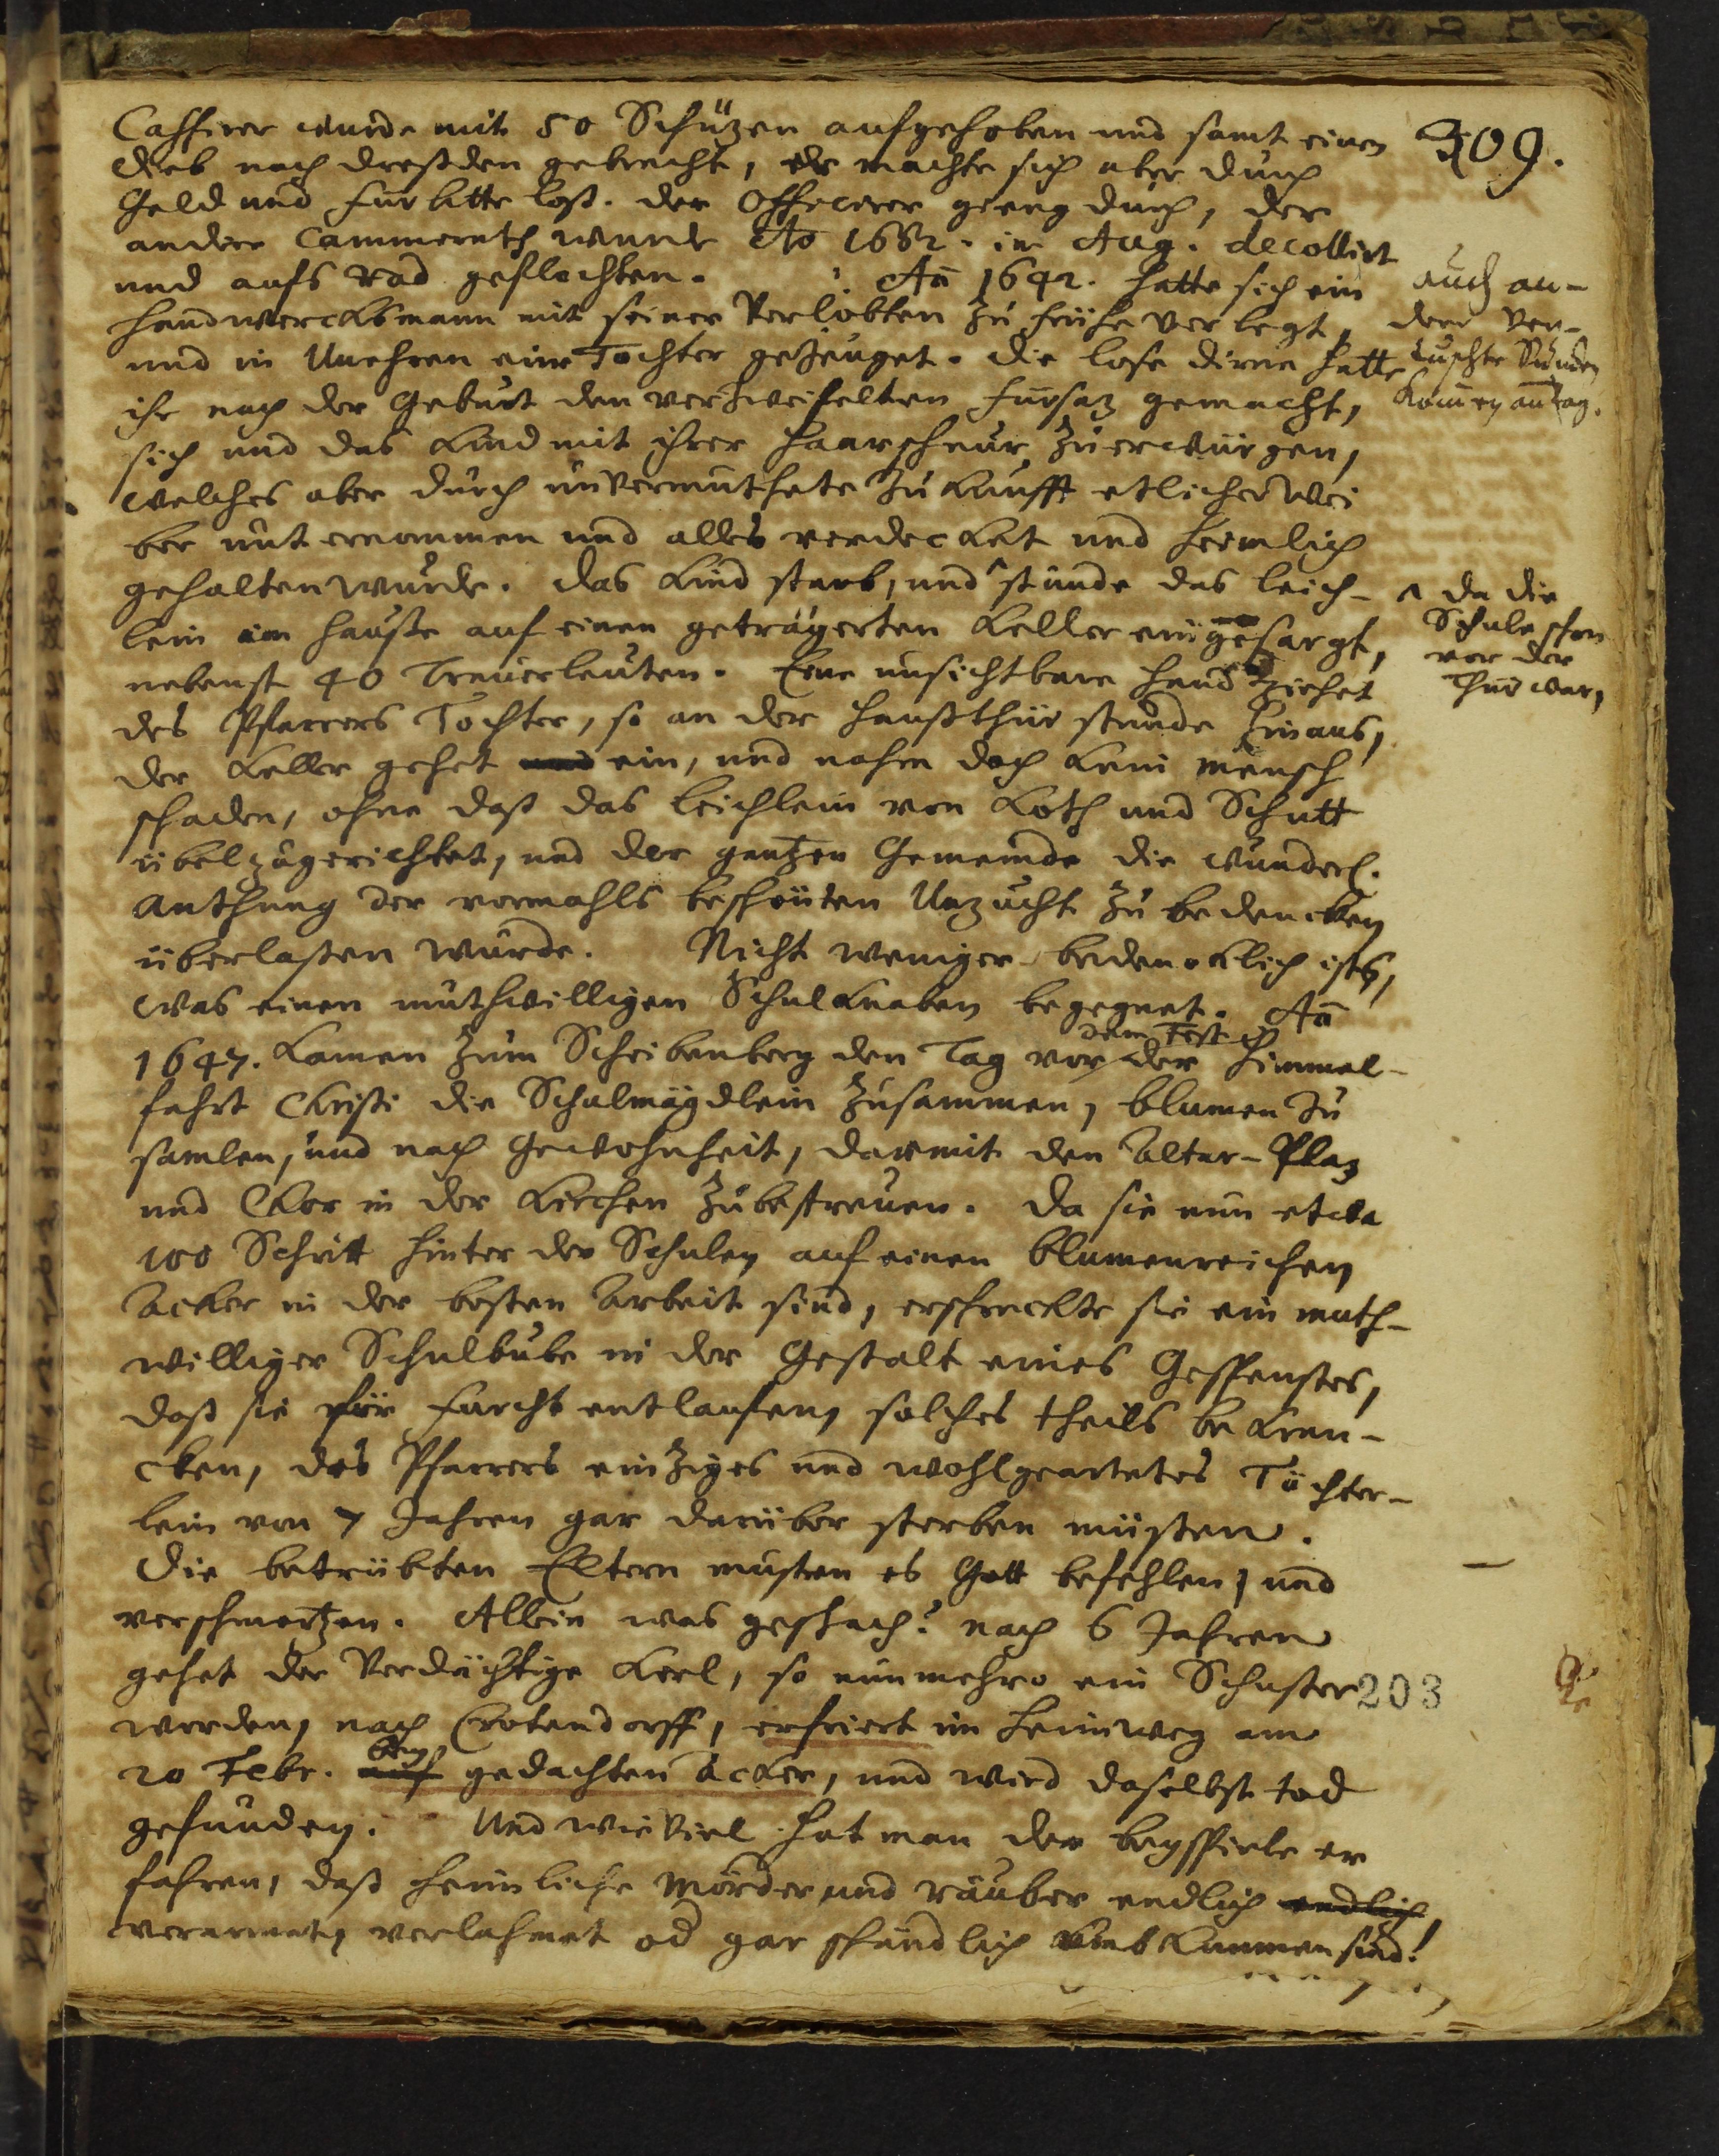 309.
Cassirer wurde mit 50 Schützen aufgehoben und samt einen
dieb nach dreßden gebracht, der machte sich aber durch
Geld und fürbitte loß. der Officirer gieng durch, der
andere Cammerath wurde Ao 1652. in Aug. decollirt
und aufs Rad geflochten. Añ 1642. hatte sich ein
handwerckßmann mit seiner Verlobten zu frühe verlegt,
und in Unehren eine Tochter gezeuget. die lose dirne hatte
ihr nach der Geburt den verzweifelten fürsaz gemacht,
sich und das Kind mit ihrer haarschnur zu erwürgen,
welches aber durch unvermuthete Zukunfft etlicher Wei
ber unternommen und alles verdecket und heimlich
gehalten wurde. das Kind starb, und ^ stunde das leich-
lein im hauße auf einen geträgerten Keller eingesargt,
nebenst 40 Trauerleuten. Eine unsichtbare hand ziehet
des Pfarrers Tochter, so an der haußthür stunde hinaus,
der Keller gehet ein, und nahm doch kein mensch
schaden, ohne daß das leichlein von Koth und Schutt
übel zugerichtet, und der gantzen Gemeinde die wunderl.
Anthung der vormahls beschönten Unzucht zu bedencken
überlaßen wurde. Nicht weniger bedencklich ists,
was einen muthwilligen Schulknaben begegnet. Añ
dem Fest
1647. kamen zum Scheibenberg den Tag vor der himmel-
fahrt Christi die Schulmägdlein zusammen, blumen zu
samlen, und nach Gewohnheit, darmit den Altar-Plaz
und Chor in der Kirchen zubestreuen. da sie nun etwa
100 Schritt hinter der Schulen auf einen blumenreichen
Acker in der besten Arbeit sind, erschreckte sie ein muth-
williger Schulbube in der Gestalt eines Gespenstes,
daß sie für furcht entlaufen, solches theils bekran-
cken, des Pfarrers einziges und wohlgeartetes Töchter-
lein von 7 Jahren gar darüber sterben müsten.
die betrübten Eltern musten es Gott befehlen, und
verschmertzen. Allein was geschach? nach 6 Jahren
gehet der Verdächtige Kerl, so nunmehro ein Schuster
worden, nach Crotendorff, erfriert im heimweg am
bey
20 Febr. auf gedachten Acker, und wird daselbst tod
gefunden. Und wie viel hat man der beyspiele er
fahren, daß heimliche Mörder und räuber endlich endlich
verarmet, verlahmet od gar schändlich umbkummen sind!
auch an-
dere ver-
tuschte Sünden
kom̄en an tag.
^ da die
Schule schon
vor der
thür war,
203